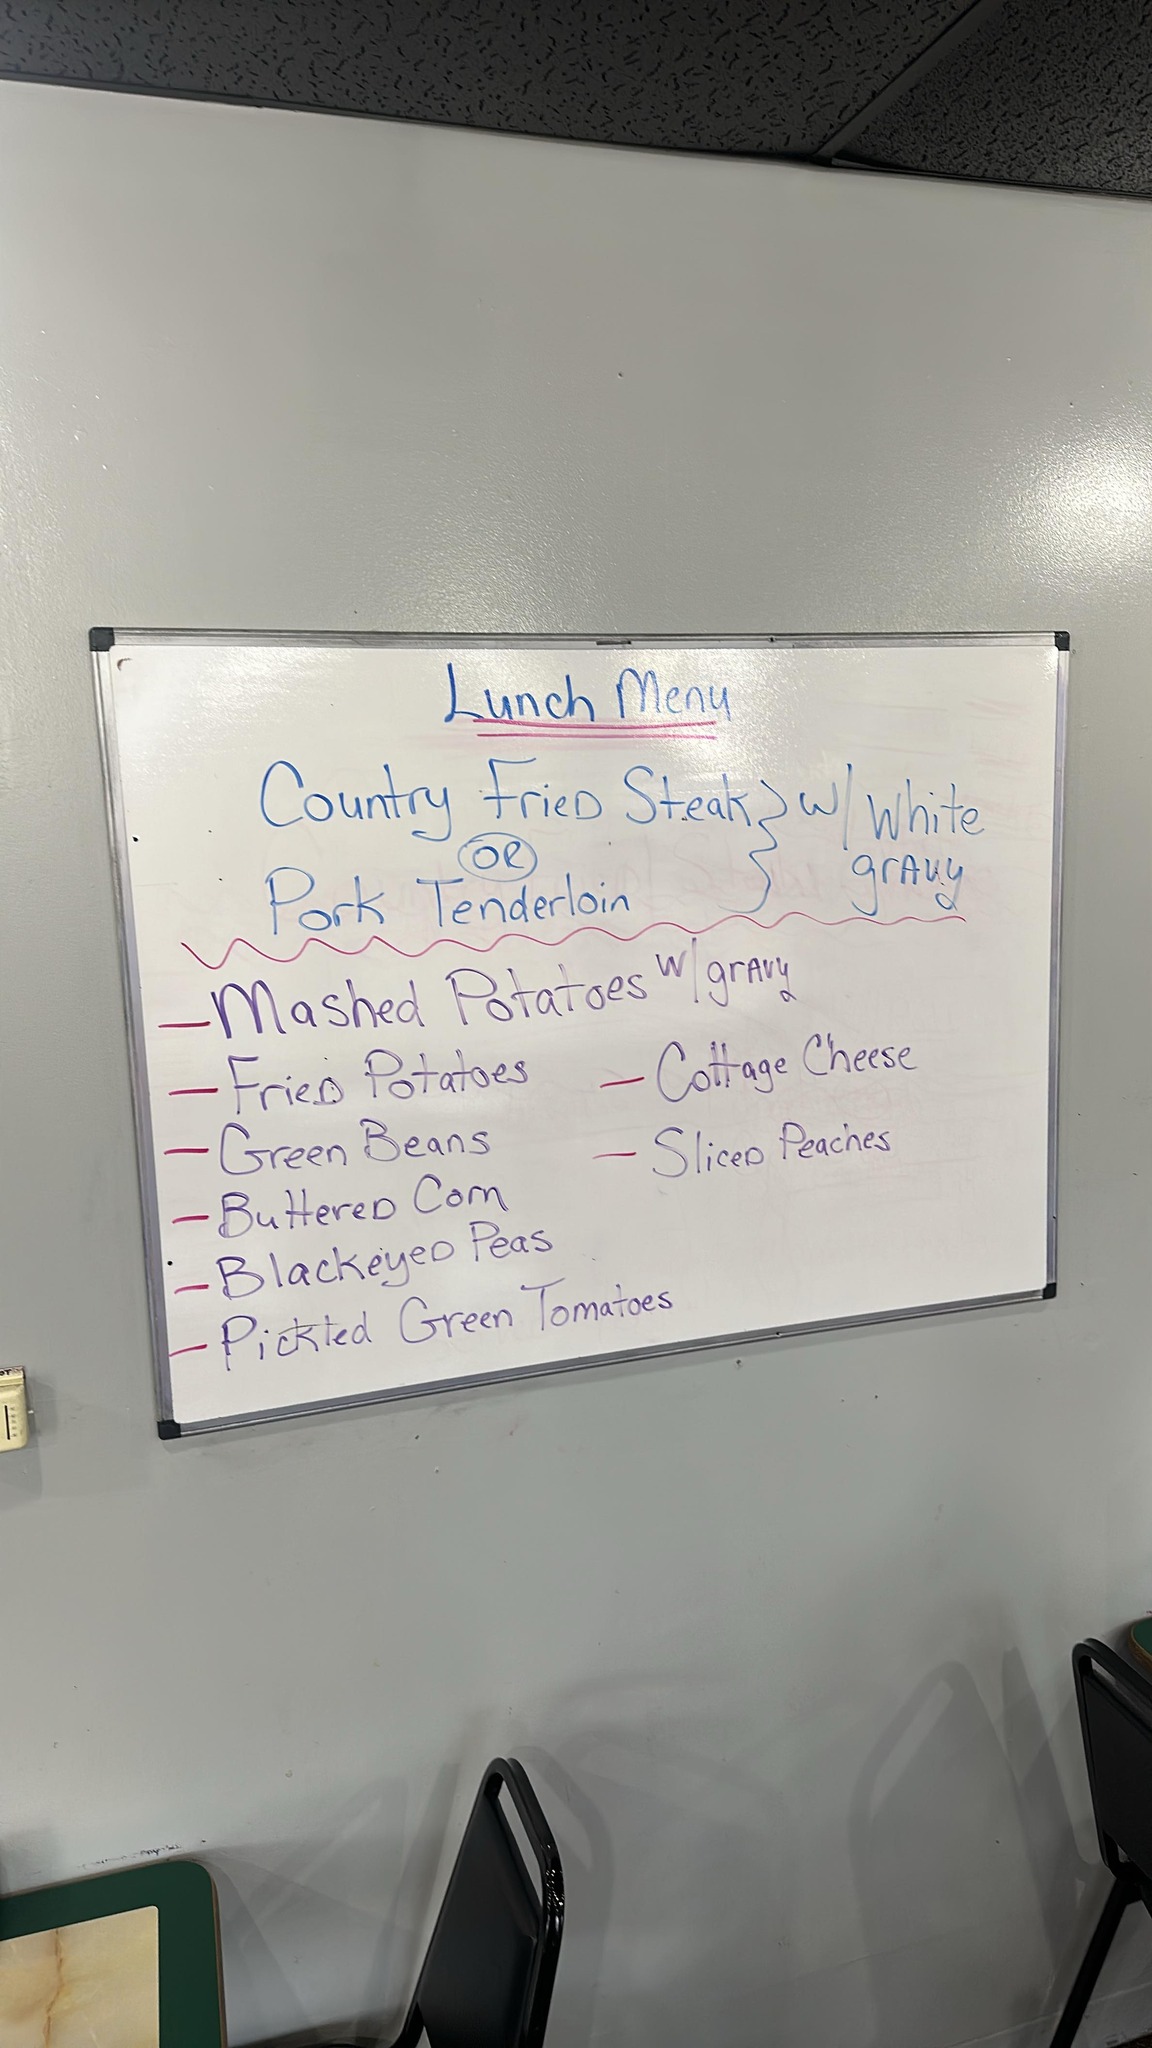 Lunch Menu
Country Fried Steak } w/ White
OR
gravy
Pork Tenderloin
— Mashed Potatoes w/gravy
— Fried Potatoes
— Cottage Cheese
— Green Beans
— Sliced Peaches
— Buttered Corn
— Blackeyed Peas
— Pickled Green Tomatoes